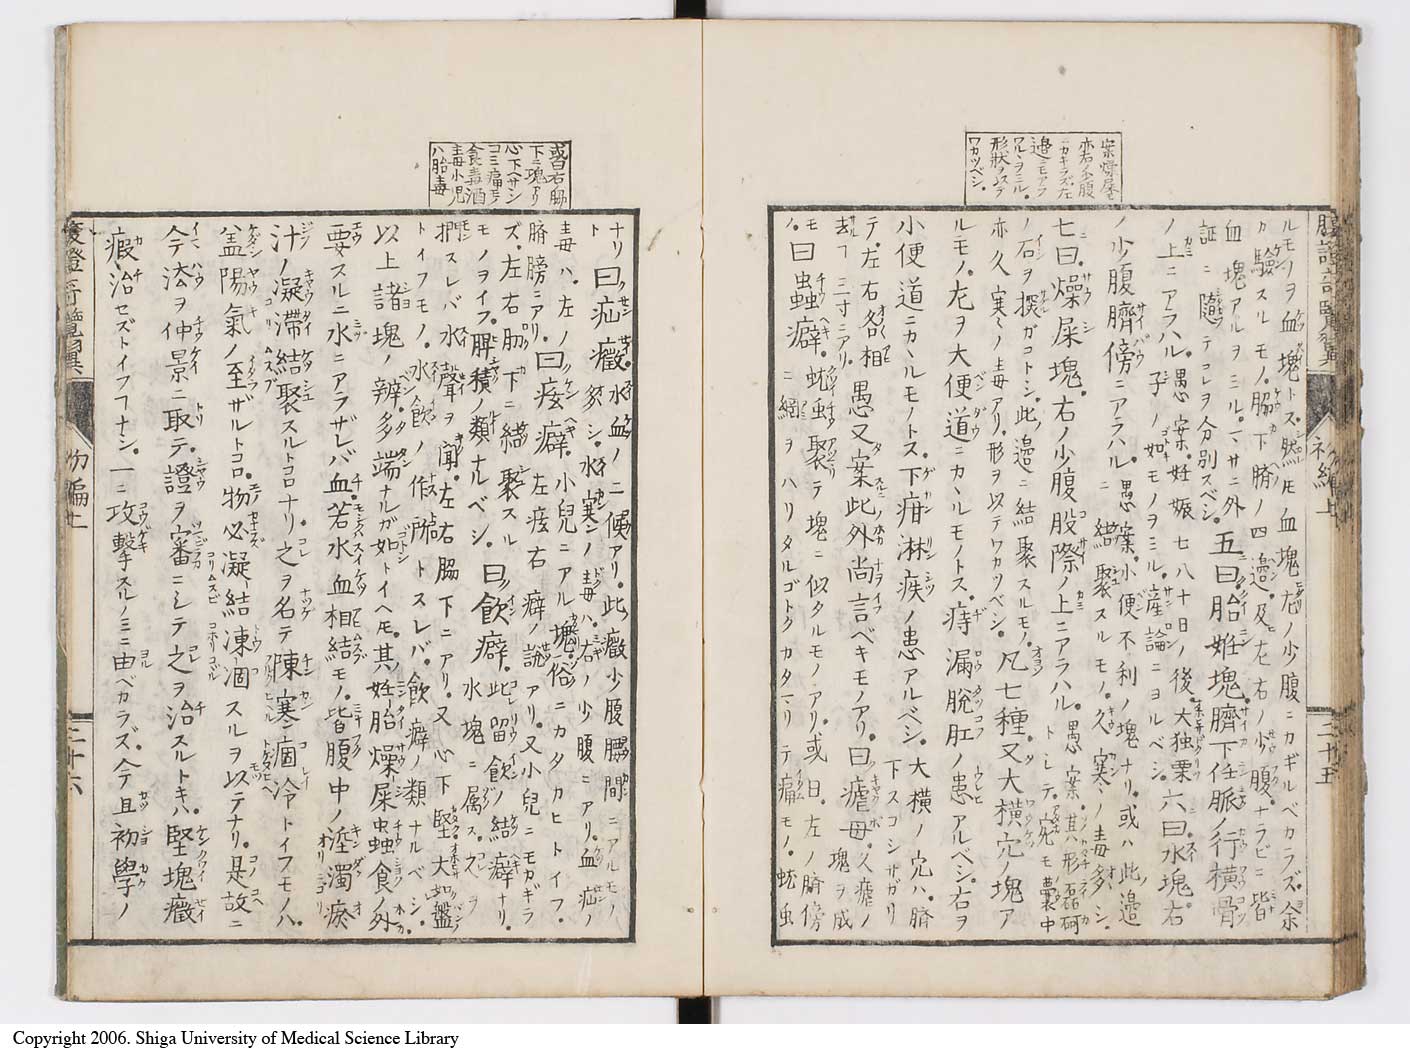 案燥屎モ
亦右ノ少腹
ニカギラズ左
邉ニモアラ
ハルヽヲミル
形狀ヲ以テ
ワカツベシ
腹證奇覽翼
初編上
二十五
ルモノヲ血塊トス然レモ血塊左ノ少腹ニカギルベカラズ余
カ驗スルモノ脇下臍ノ四邉及左右ノ少腹ナラビニ皆
血塊アルヲミルヿ、マサニ外
証ニ隨テコレヲ分別スベシ 五曰胎姙塊臍下任脈ノ行横骨
ノ上ニアラハル 愚案妊娠七八十日ノ後大抵栗
子ノ如モノヲミル産論ニヨルベシ 六曰水塊右
ノ少腹臍傍ニアラハル 愚案小便不利ノ塊ナリ或ハ此邉
ニ結聚スルモノ久寒ノ毒多シ
七曰燥屎塊右ノ少腹股際ノ上ニアラハル 愚案其形磊砢
トシテ宛モ囊中
ノ石ヲ探ガコトシ此邉ニ結聚スルモノ
亦久寒ノ毒アリ形ヲ以テワカツベシ 凡七種又大横穴ノ塊ア
ルモノ左ヲ大便道ニカヽルモノトス痔漏脫肛ノ患アルベシ右ヲ
小便道ニカヽルモノトス下疳淋疾ノ患アルベシ 大横ノ穴ハ臍
下スコシサガリ
テ左右各相
去ヿ三寸ニアリ 愚又案此外尚言ベキモノアリ曰瘧母 久瘧ノ
塊ヲ成
モ
ノ 曰蟲癖 蚘蟲聚テ塊ニ似タルモノアリ或曰左ノ臍傍
ニ綱ヲハリタルゴトクカタマリテ痛モノ蚘虫
或曰右脇
下ニ塊アリ
心下ヘサシ
コミ痛モノ
食毒酒
毒小兒
ハ胎毒
ナリ
ト 曰疝癥 水血ノ二候アリ此癥少腹腰間ニアルモノ
多シ水寒ノ毒ハ右ノ少腹ニアリ血疝ノ
毒ハ左ノ
臍膀ニアリ 曰痃癖 小兒ニアル塊俗ニカタカヒトイフ
左痃右癖ノ說アリ又小兒ニモカギラ
ズ左右肋下ニ結聚スル
モノヲイフ脾積ノ類ナルベシ 曰飮癖 此留飮ノ結癖ナリ
水塊ニ属ス之ヲ
捫スレバ水聲ヲ聞左右脇下ニアリ又心下堅大如盤
トイフモノ水飮ノ作所トスレバ飮癖ノ類ナルベシ
以上諸塊ノ辨多端ナルガ如トイヘモ其妊胎燥屎蟲食ノ外
要スルニ水ニアラザレバ血若水血相結モノ皆腹中ノ淫濁瘀
汁ノ凝滯結聚スルトコロナリ之ヲ名テ陳寒痼冷トイフモノハ
盖陽氣ノ至ザルトコロ物必凝結凍涸スルヲ以テナリ是故ニ
今法ヲ仲景ニ取テ證ヲ審ニシテ之ヲ治スルトキハ堅塊癥
瘕治セズトイフヿナシ一ニ攻擊スルノミニ由ベカラズ今且初學ノ
腹證奇覽翼
初編上
二十六
Copyright 2006. Shiga University of Medical Science Library